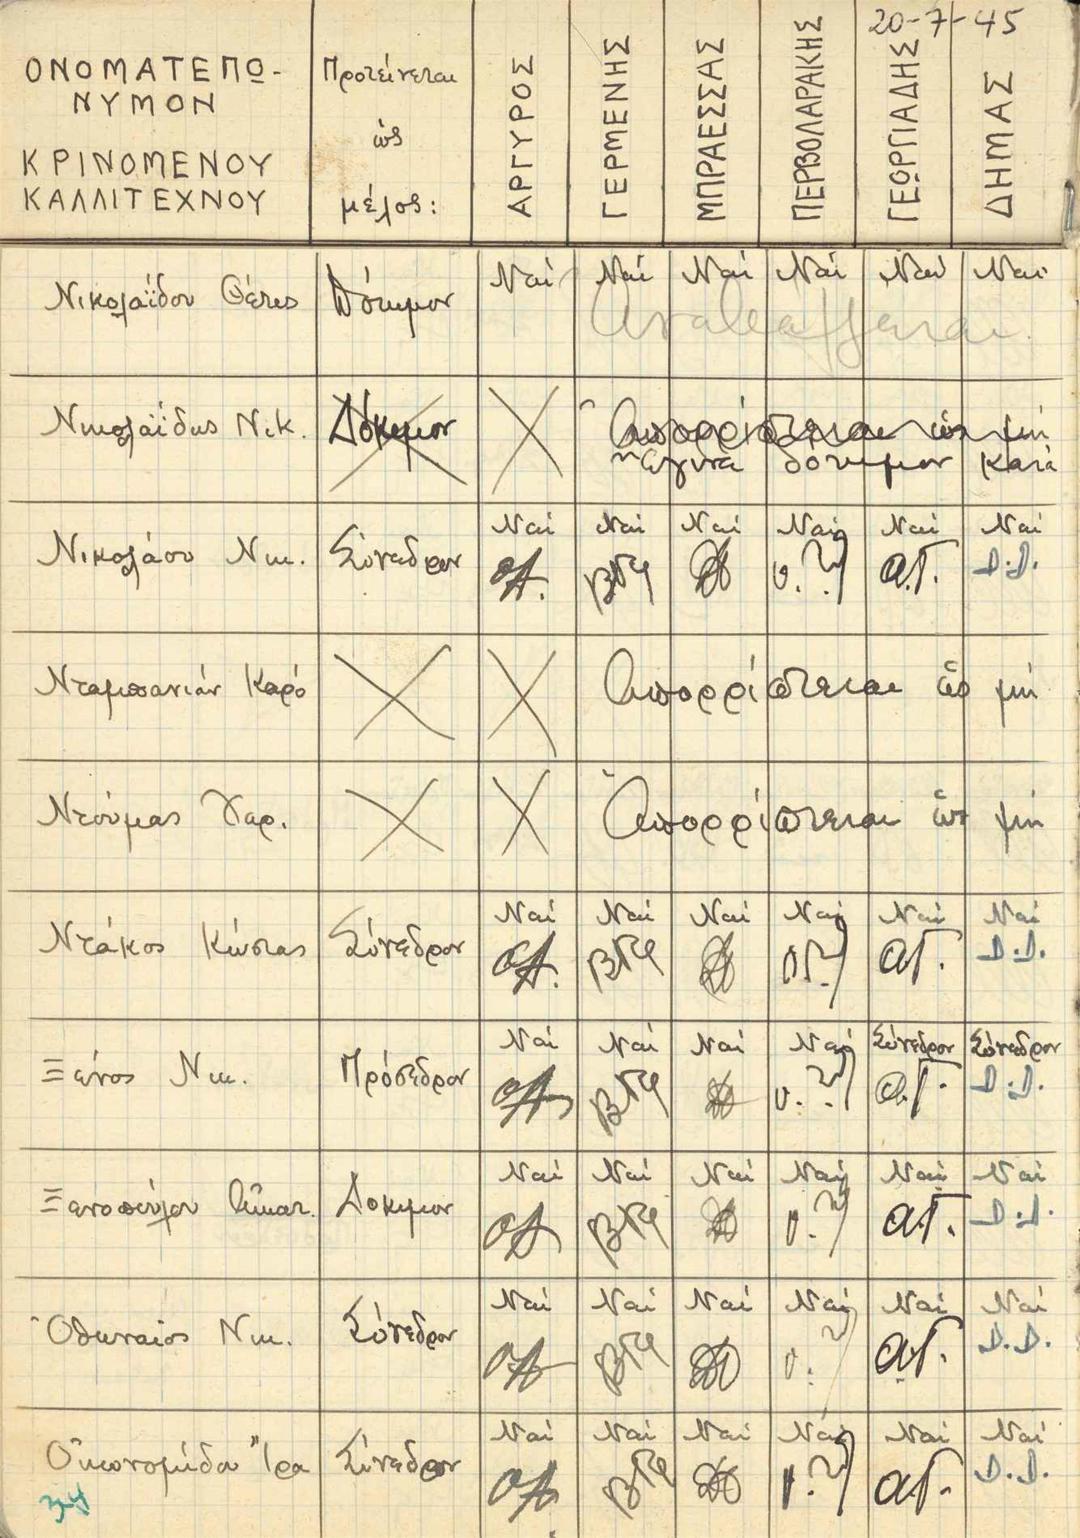 20-7-45
ΟΝΟΜΑΤΕΠΩ-
ΝΥΜΟΝ
ΚΡΙΝΟΜΕΝΟΥ
ΚΑΛΛΙΤΕΧΝΟΥ
Προτείνεται
ὡς
μέλος:
ΑΡΓΥΡΟΣ
ΓΕΡΜΕΝΗΣ
ΜΠΡΑΕΣΣΑΣ
ΠΕΡΒΟΛΑΡΑΚΗΣ
ΓΕΩΡΓΙΑΔΗΣ
ΔΗΜΑΣ
Νικολαΐδου Θέτις Δόκιμον Ναί Ναί Ναί Ναί Ναί Ναί
Νικολαΐδης Νικ. Δόκιμον Ἀπορρίπτεται ὡς μή
δόκιμον κατά
Νικολάου Νικ. Σύνεδρον Ναί Ναί Ναί Ναί Ναί Ναί
Β Γ Α.Γ. Δ.Δ.
Νταμπανιάν Καρό Ἀπορρίπτεται ὡς μή
Ντούμας Ἀπορρίπτεται ὡς μή
Ντάκος Κώστας Σύνεδρον Ναί Ναί Ναί Ναί Ναί Ναί
ΒΓ ΑΓ. Δ.Δ.
Ξένος Νικ. Πρόσεδρον Ναί Ναί Ναί Ναί Σύνεδρον Σύνεδρον
ΒΓ Α.Γ. Δ.Δ.
Ξενοπούλου Αἰκατ. Δοκιμον Ναί Ναί Ναί Ναί Ναί Ναί
ΒΓ ΑΓ. Δ.Δ.
Ὀθωναῖος Νικ. Σύνεδρον Ναί Ναί Ναί Ναί Ναί Ναί
ΒΓ ΑΓ. Δ.Δ.
Οἰκονομίδου Ἴρα Σύνεδρον Ναί Ναί Ναί Ναί Ναί Ναί
ΒΓ ΑΓ. Δ.Δ.
34